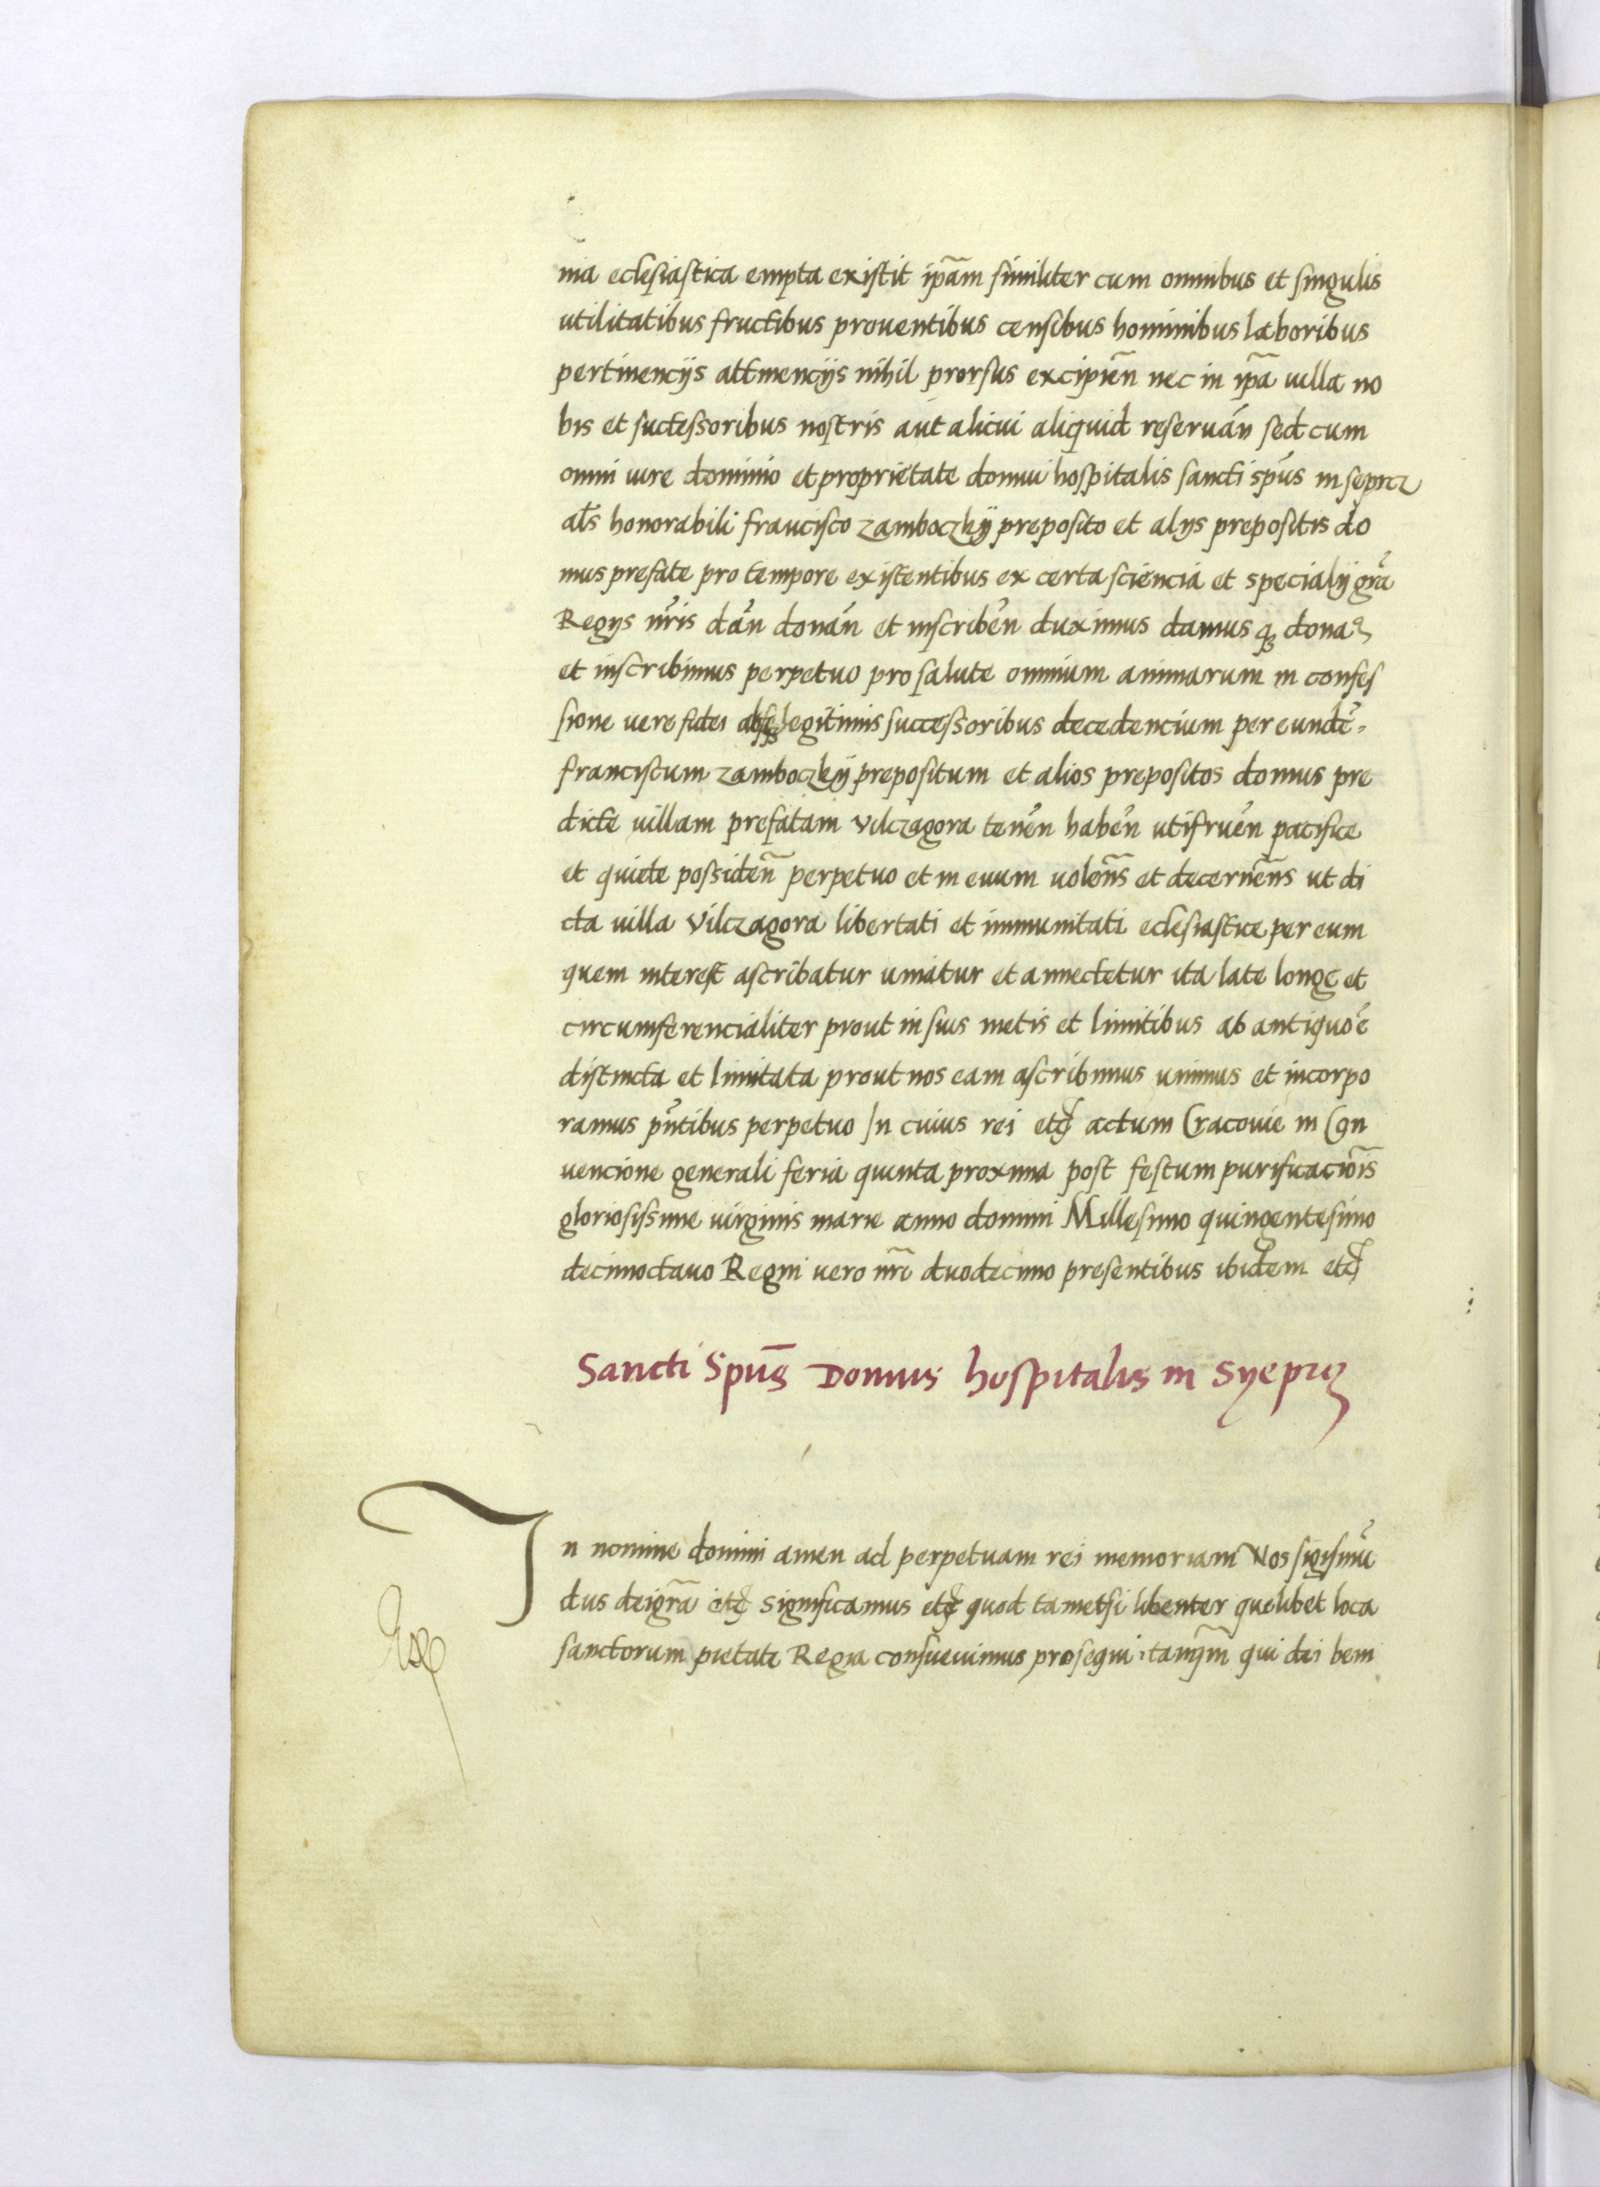 nia eclesiastica empta existit ip̃am similiter cum omnibus et singulis
utilitatibus fructibus prouentibus censibus hominibus laboribus
pertinencijs attinencijs nihil prorsus excipien̄ nec in ip̃a uilla no
bis et successoribus nostris aut alicui aliquid reseruan̄ sed cum
omni iure dominio et proprietate domui hospitalis sancti sp̄us in
al̄s honorabili francisco zamboczkij preposito et alijs prepositis do
mus prefate pro tempore existentibus ex certa sciencia et specialij gr̄a
Regijs nr̄is dan̄ donan̄ et inscriben̄ duximus damus q̨ dona
et inscribimus perpetuo pro salute omnium animarum in confes
sione vere fidei absq̨ legitimis successoribus decedencium per eundē
franciscum zamboczkij prepositum et alios prepositos domus pre
dicte uillam prefatam vilczagora tenen̄ haben̄ utifruen̄ pacifice
et quiete possiden̄ perpetuo et in euum uolen̄s et decernen̄s ut di
cta uilla vilczagora libertati et immunitati eclesiastice per eum
quem interest ascribatur uniatur et annectetur ita late longe et
circumferencialiter prout in suis metis et limitibus ab antiquo ē
distincta et limitata prout nos eam ascribimus unimus et incorpo
ramus pn̄tibus perpetuo In cuius rei etc̄ actum Cracouie in Con
uencione generali feria quinta proxima post festum purificacio͞is
gloriosissime uirginis marie anno domini Millesimo quingentesimo
decimoctauo Regni uero nr̄i duodecimo presentibus ibidem etc̄
Sancti Sp̄us Domus hospitalis in Syeprcz
In nomine domini amen ad perpetuam rei memoriam Nos sigismū
dus dei gr̄a etc̄ significamus etc̄ quod tametsi libenter quelibet loca
sanctorum pietate Regia consueuimus prosequi tamq̄m qui dei beni